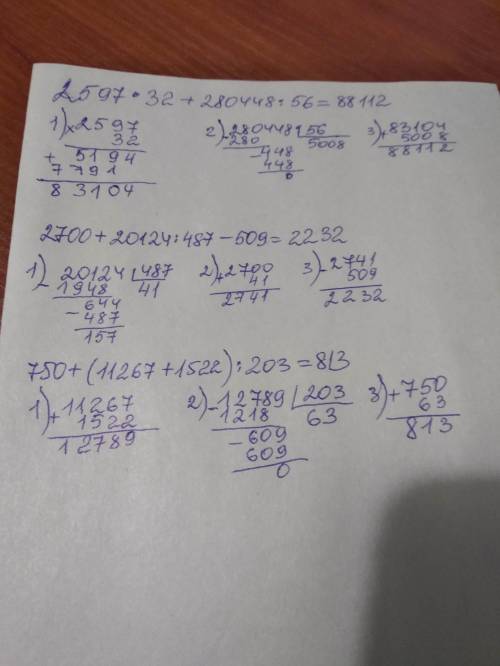 2597 · 32 + 280448 : 56 = 88112
1) × 2597 2) - 280448 | 56 3) + 83104
32 280 5008 5008
+ 5194 - 448 88112
7791 448
83104 0
2700 + 20124 : 487 - 509 = 2232
1) - 20124 | 487 2) + 2700 3) - 2741
1948 41 41 509
- 644 2741 2232
487
157
750 + (11267 + 1522) : 203 = 813
1) + 11267 2) - 12789 | 203 3) + 750
1522 1218 63 63
12789 - 609 813
609
0